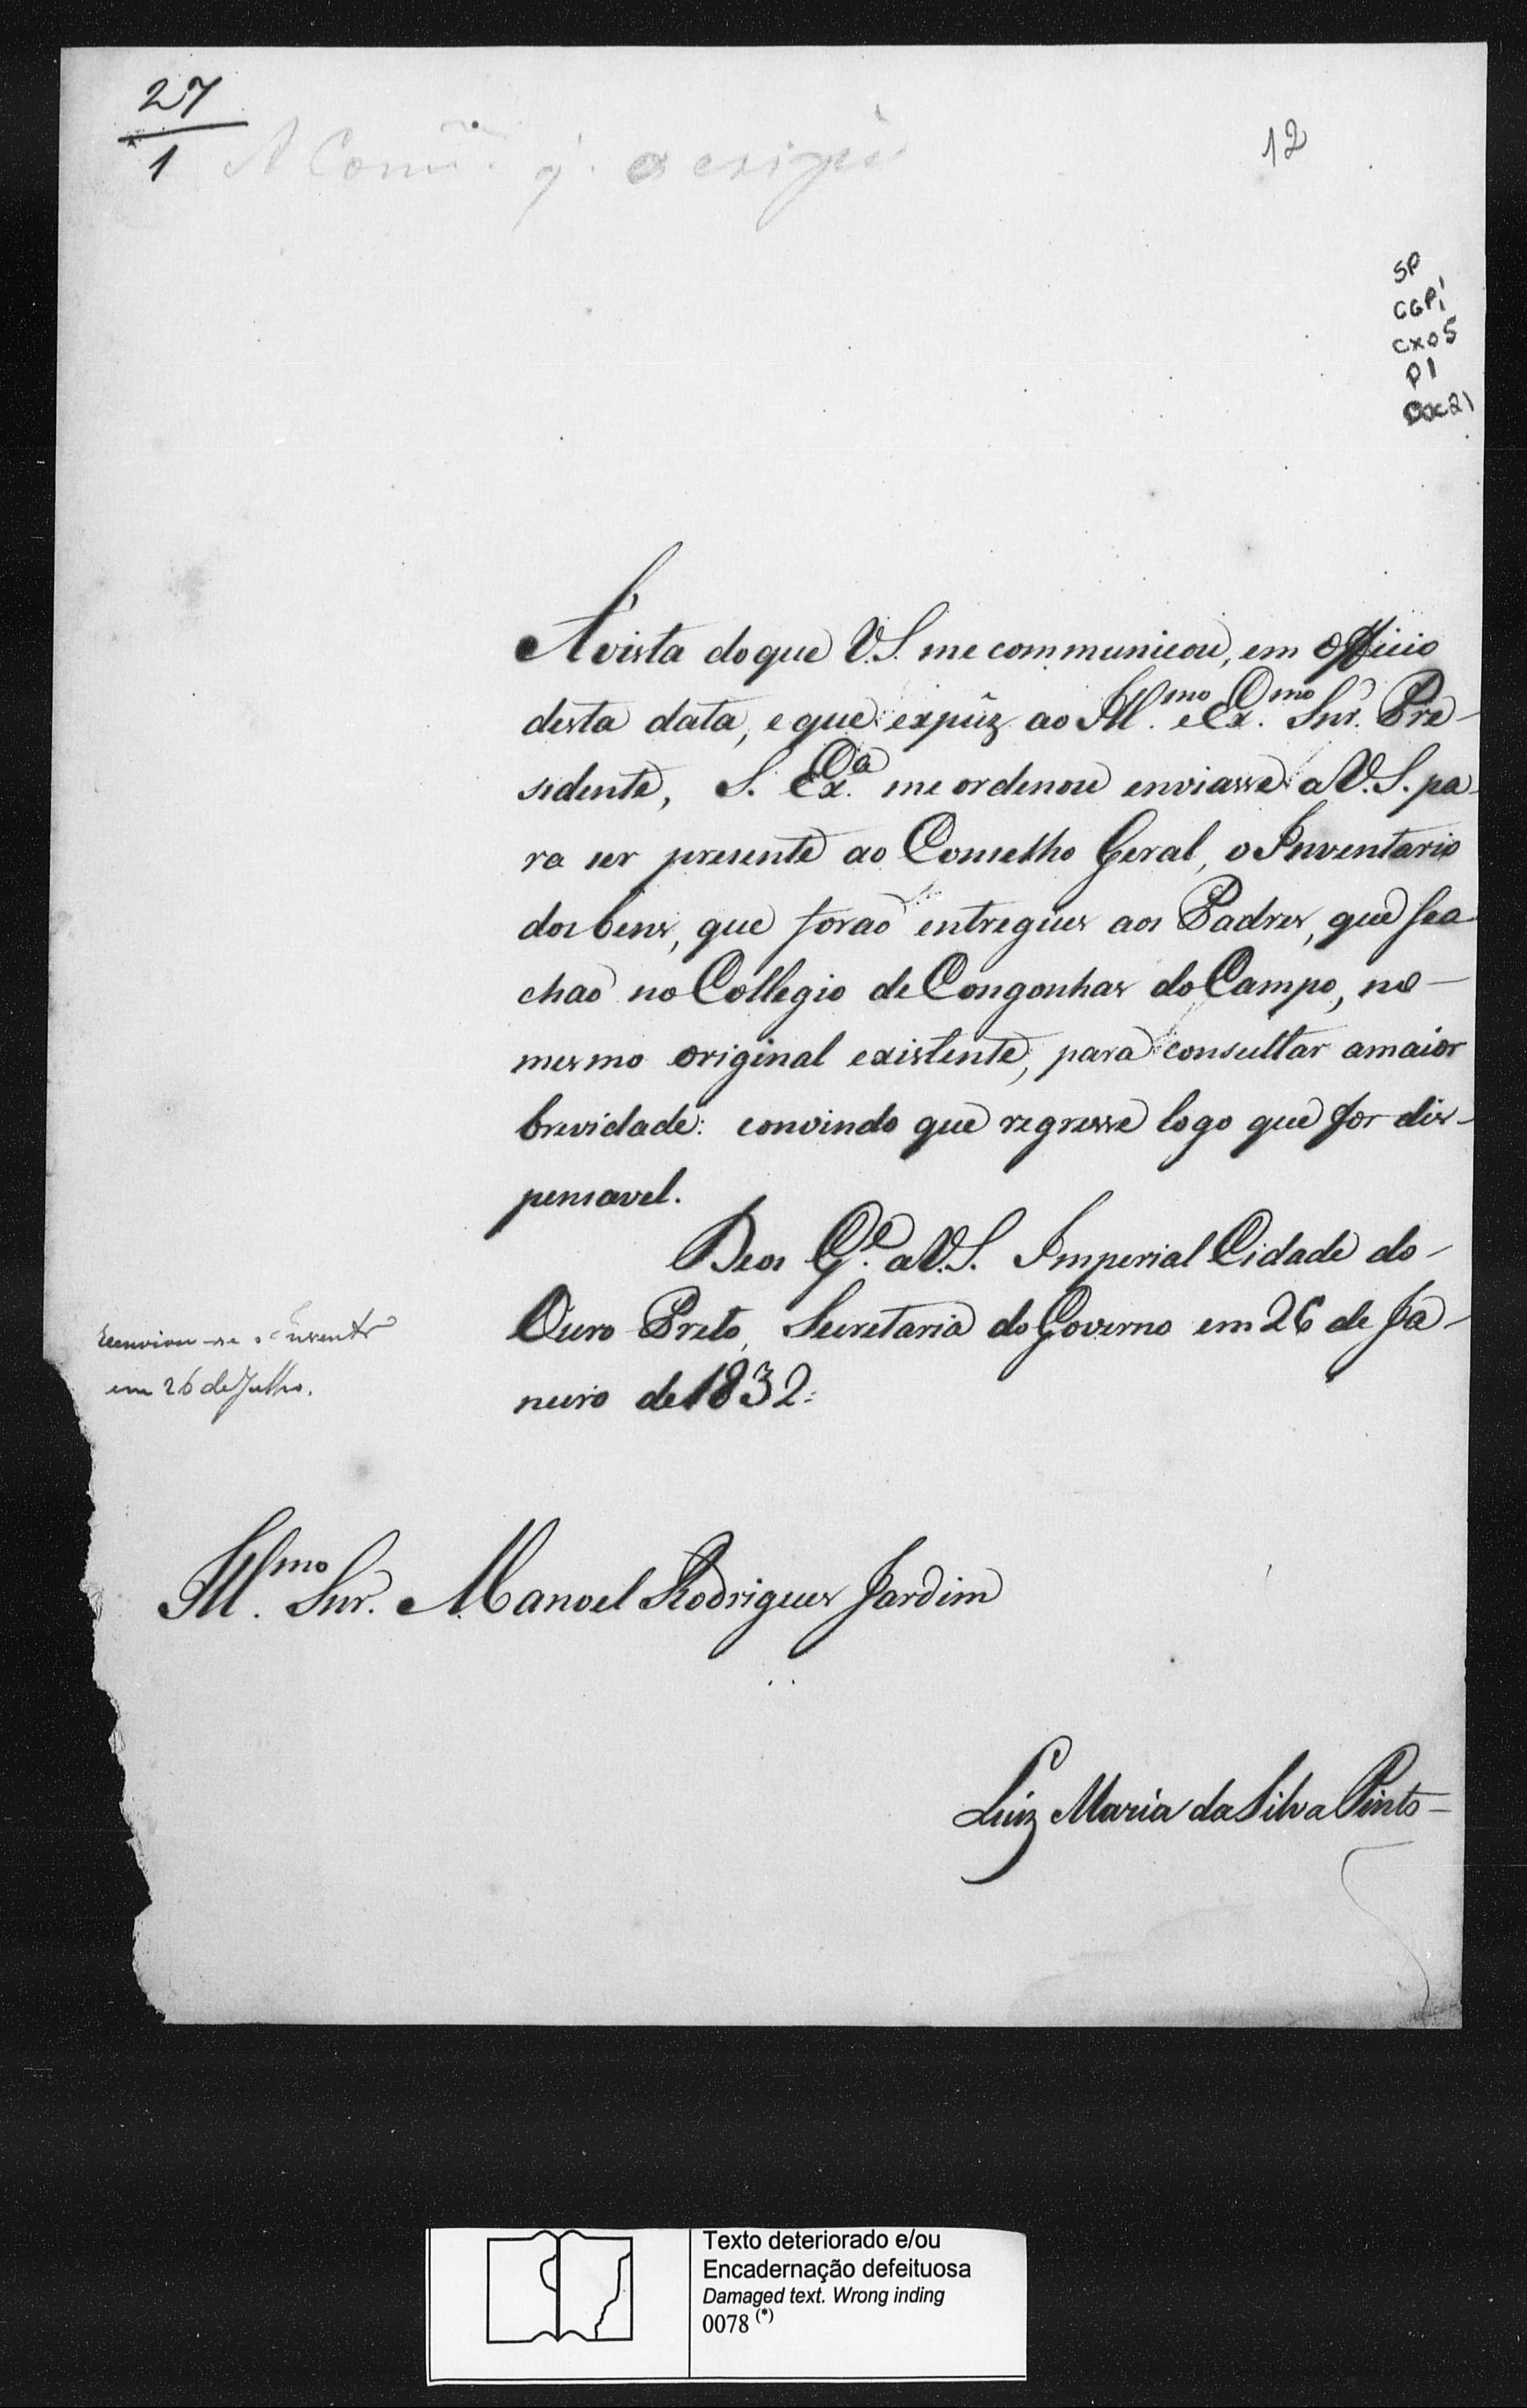 27
1
A Com. q. o exigio
12
SP
CGP1
CX05
P1
Doc21
Á vista do que V.S. me communicou, em Officio
desta data, e que expûz ao Ill.mo e Ex.mo Snr. Pre-
sidente, S. Ex.a me ordenou enviasse a V.S. pa-
ra ser presente ao Conselho Geral, o Inventario
dos bens, que forão entregues aos Padres, que se a
chão no Collegio de Congonhas do Campo, no-
mesmo original existente, para consultar a maior
brevidade: convindo que regresse logo que for dis-
pensavel.
Deos G.e a V.S. Imperial Cidade do-
Ouro Preto, Secretaria do Governo em 26 de Ja-
neiro de 1832.
Reenviou-se o Invent.o
em 26 de Julho.
Ill.mo Snr. Manoel Rodrigues Jardim
Luiz Maria da Silva Pinto-
Texto deteriorado e/ou
Encadernação defeituosa
Damaged text. Wrong inding
0078 (*)